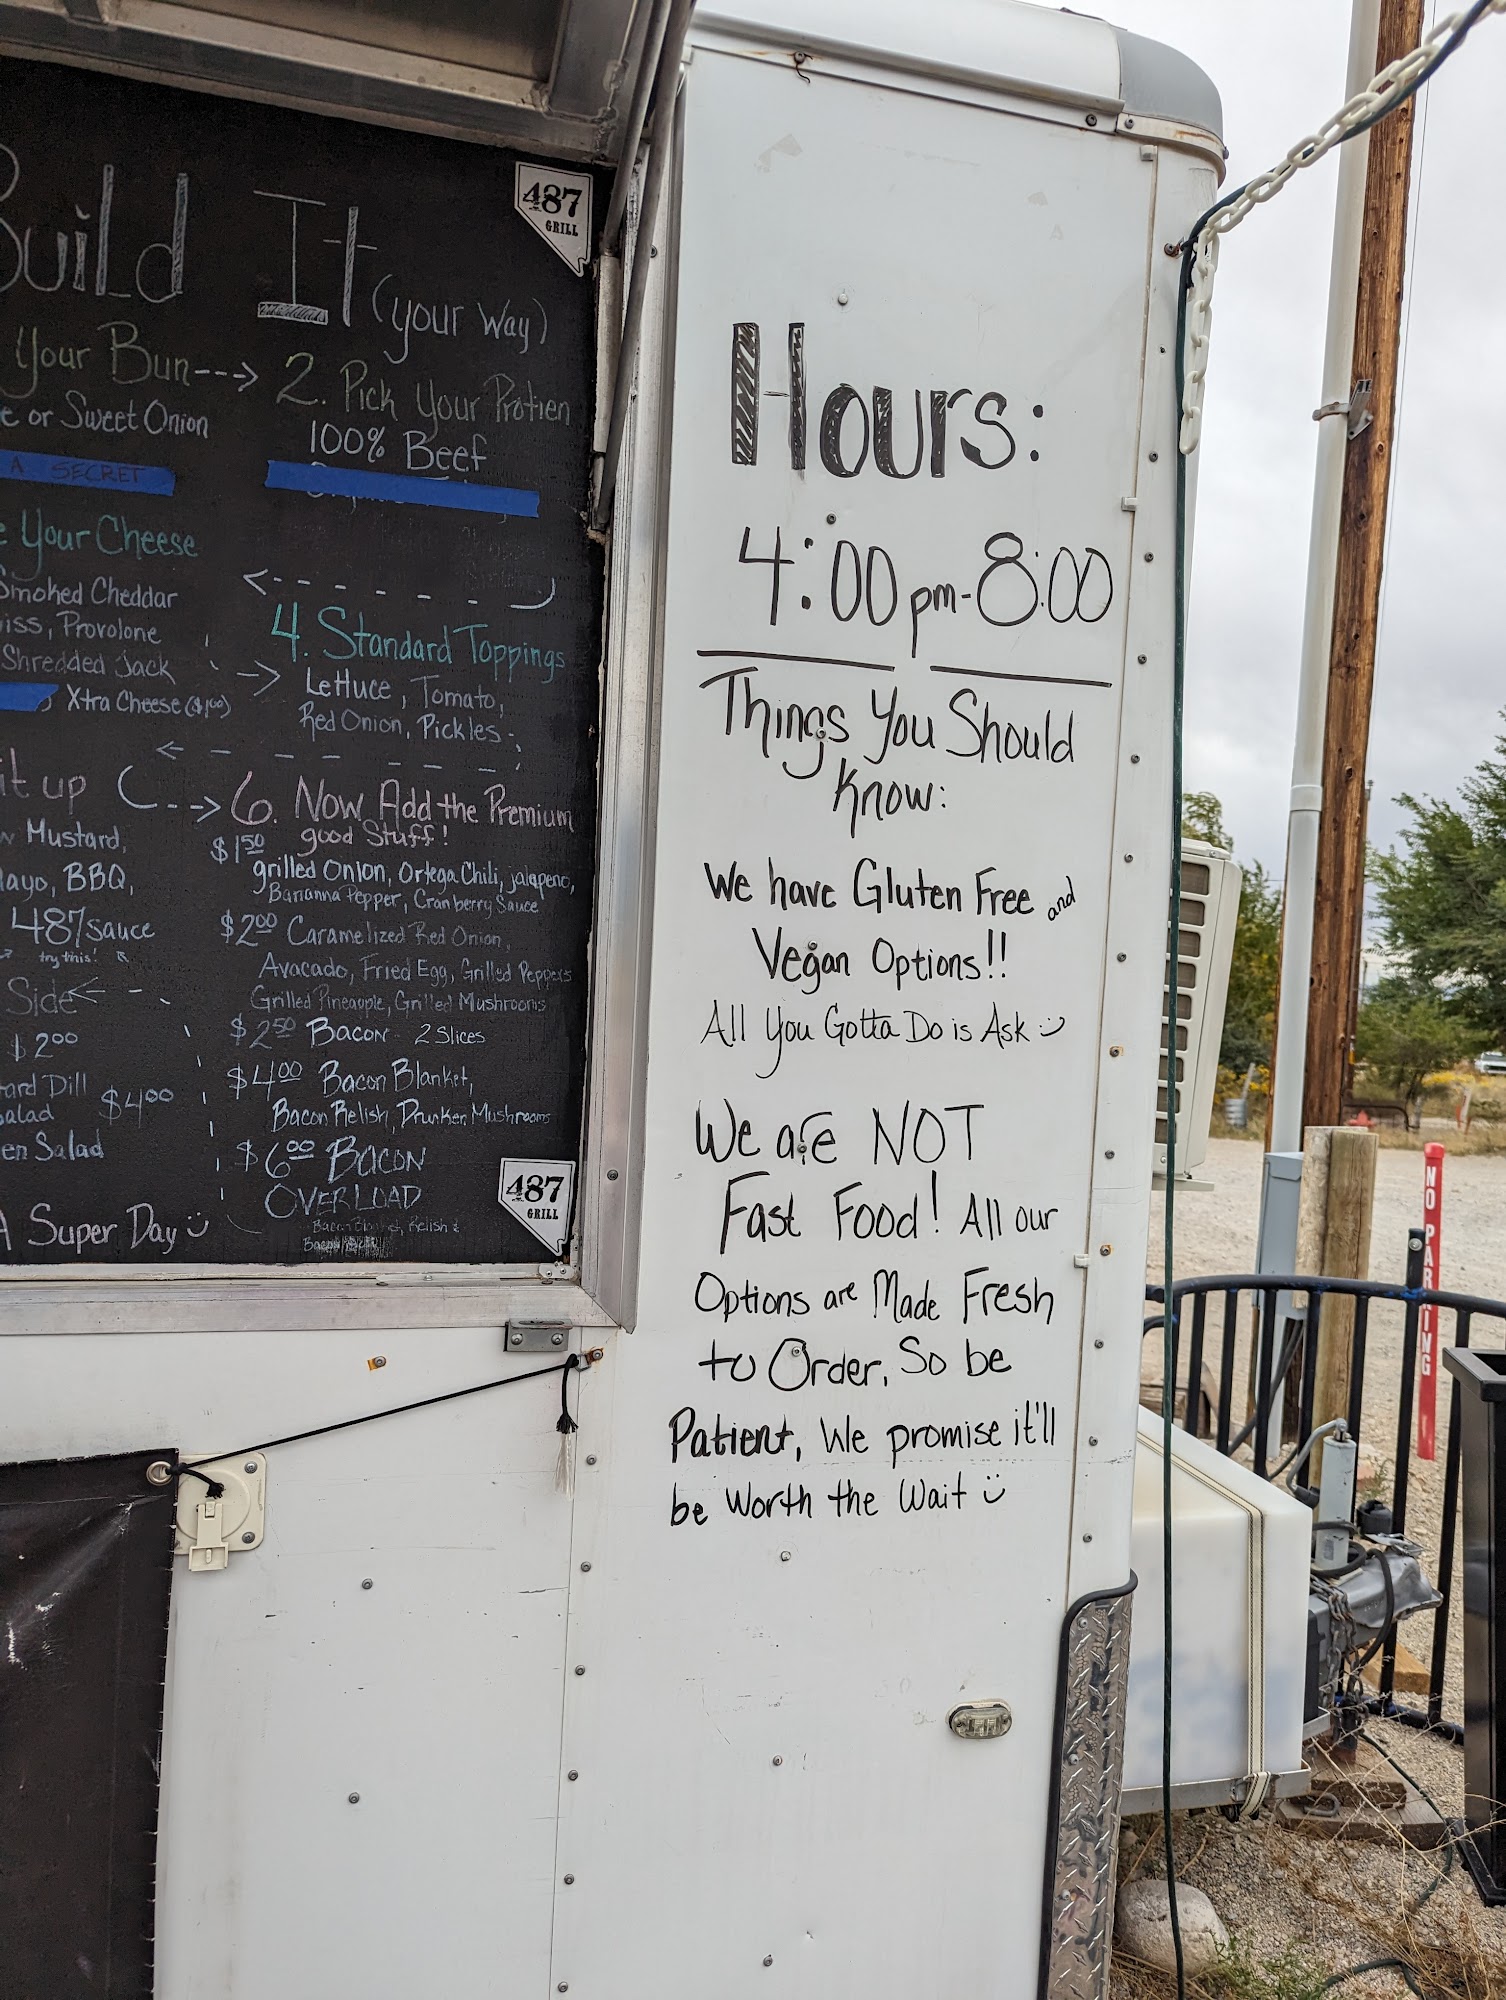 Build It (your way)
487
GRILL
Your Bun---> 2. Pick Your Protien
or Sweet Onion
100% Beef
A SECRET
Your Cheese
Smoked Cheddar
Provolone
Shredded Jack
Xtra Cheese ($1.00)
4. Standard Toppings
Lettuce, Tomato,
Red Onion, Pickles
it up
6. Now Add the Premium
good Stuff!
Mustard,
BBQ,
487 sauce
try this!
Side
$2.00
Dill
$4.00
Salad
$1.50
grilled Onion, Ortega Chili, jalapeno,
Bananna Pepper, Cranberry Sauce
$2.00 Caramelized Red Onion,
Avacado, Fried Egg, Grilled Peppers
Grilled Pineapple, Grilled Mushrooms
$2.50 Bacon - 2 Slices
$4.00 Bacon Blanket,
Bacon Relish, Drunken Mushrooms
$6.00 BACON
OVERLOAD
A Super Day
487
GRILL
Hours:
4:00pm-8:00
Things You Should
Know:
We have Gluten Free and
Vegan Options!!
All You Gotta Do is Ask
We are NOT
Fast Food! All our
Options are Made Fresh
to Order, So be
Patient, We promise it'll
be Worth the Wait
NO PARKING